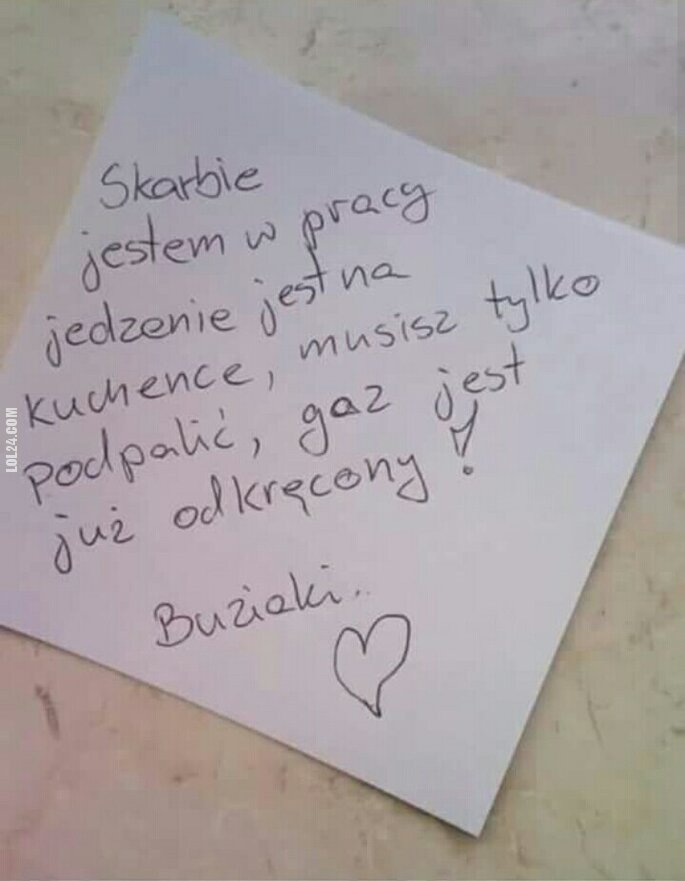 Skarbie
jestem w pracy
jedzenie jest na
kuchence, musisz tylko
podpalić, gaz jest
już odkręcony!
Buziaki..
LOL24.COM